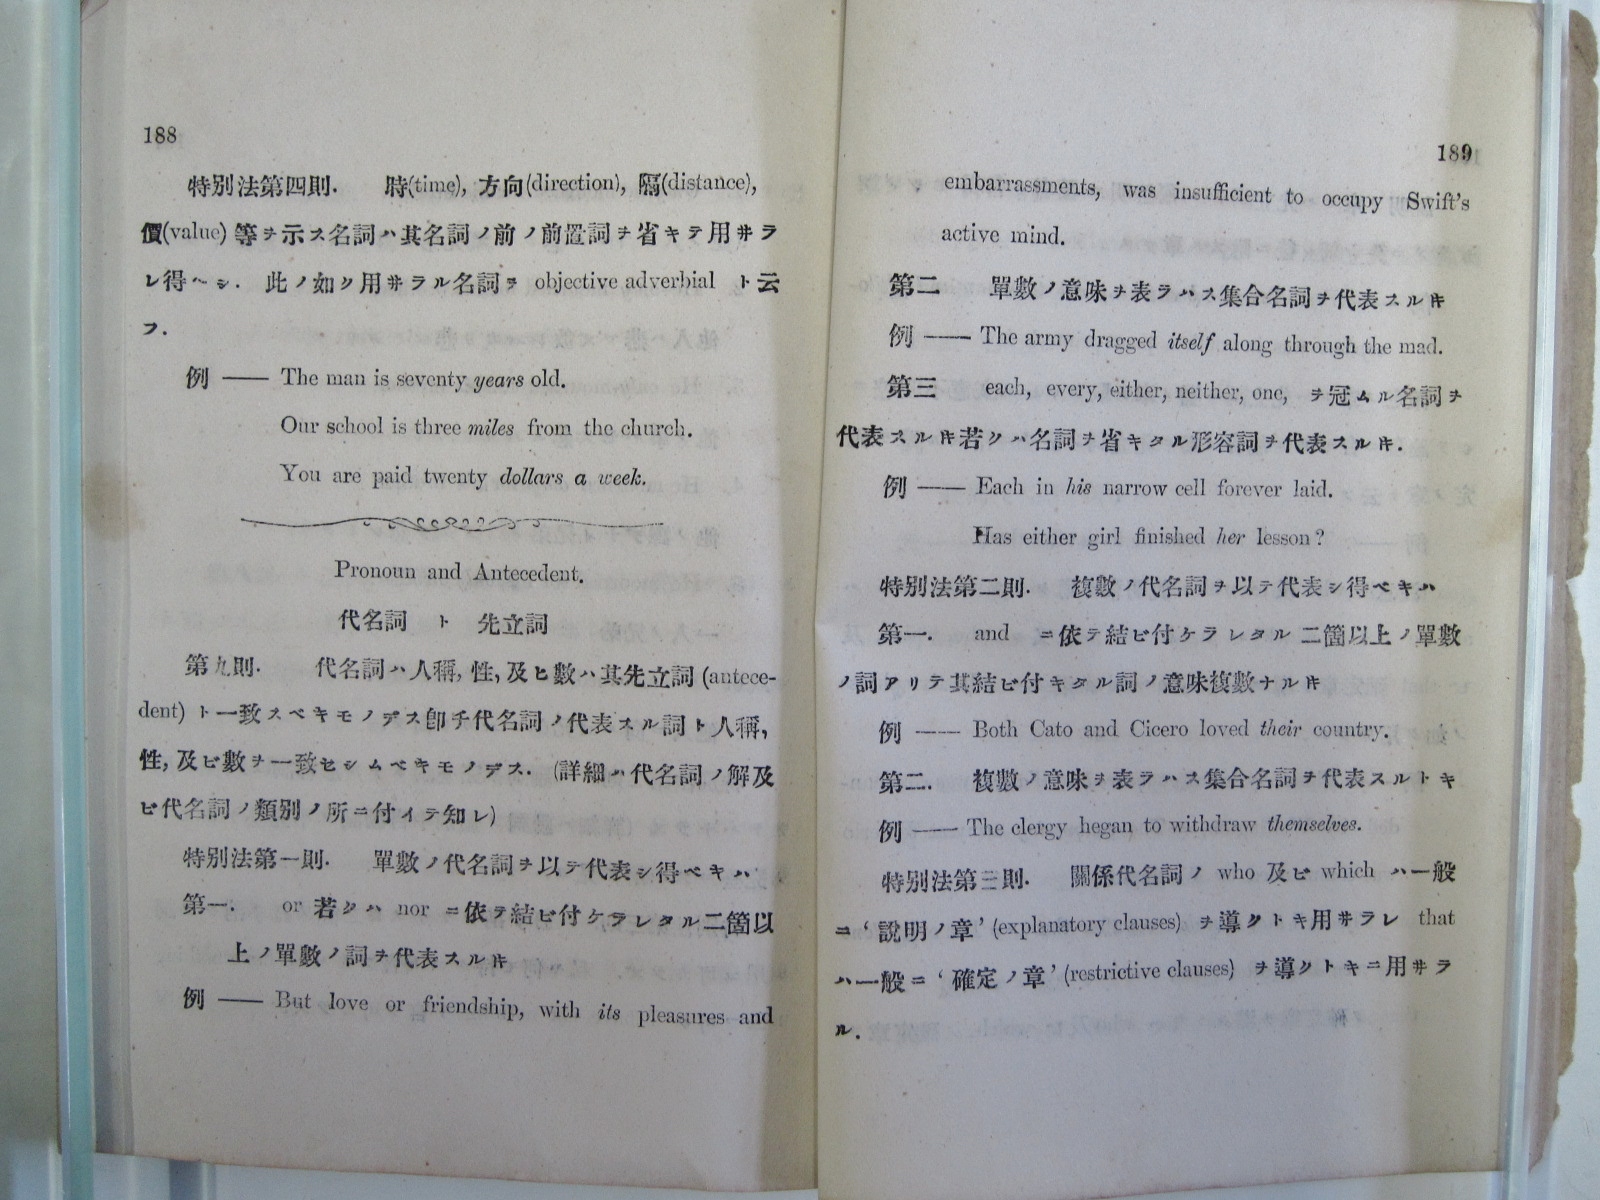 188
特別法第四則. 時(time), 方向(direction), 隔(distance),
價(value) 等ヲ示ス名詞ハ其名詞ノ前ノ前置詞ヲ省キテ用井ラ
レ得ベシ. 此ノ如ク用井ラル名詞ヲ objective adverbial ト云
フ.
例 —— The man is seventy years old.
Our school is three miles from the church.
You are paid twenty dollars a week.
Pronoun and Antecedent.
代名詞 ト 先立詞
第九則. 代名詞ハ人稱, 性, 及ヒ數ハ其先立詞 (antece-
dent) ト一致スベキモノデス卽チ代名詞ノ代表スル詞ト人稱,
性, 及ビ數ヲ一致セシムベキモノデス. (詳細ハ代名詞ノ解及
ビ代名詞ノ類別ノ所ニ付イテ知レ)
特別法第一則. 單數ノ代名詞ヲ以テ代表シ得ベキハ
第一. or 若クハ nor ニ依テ結ビ付ケラレタル二箇以
上ノ單數ノ詞ヲ代表スルㇳキ
例 —— But love or friendship, with its pleasures and
189
embarrassments, was insufficient to occupy Swift's
active mind.
第二 單數ノ意味ヲ表ラハス集合名詞ヲ代表スルㇳキ
例 —— The army dragged itself along through the mad.
第三 each, every, either, neither, one, ヲ冠ムル名詞ヲ
代表スルㇳキ若クハ名詞ヲ省キタル形容詞ヲ代表スルㇳキ.
例 —— Each in his narrow cell forever laid.
Has either girl finished her lesson?
特別法第二則. 複數ノ代名詞ヲ以テ代表シ得ベキハ
第一. and ニ依テ結ビ付ケラレタル 二箇以上ノ單數
ノ詞アリテ其結ビ付キタル詞ノ意味複數ナルㇳキ
例 —— Both Cato and Cicero loved their country.
第二. 複數ノ意味ヲ表ラハス集合名詞ヲ代表スルトキ
例 —— The clergy hegan to withdraw themselves.
特別法第三則. 關係代名詞ノ who 及ビ which ハ一般
ニ‘說明ノ章’ (explanatory clauses) ヲ導クトキ用井ラレ that
ハ一般ニ‘確定ノ章’ (restrictive clauses) ヲ導クトキニ用井ラ
ル.